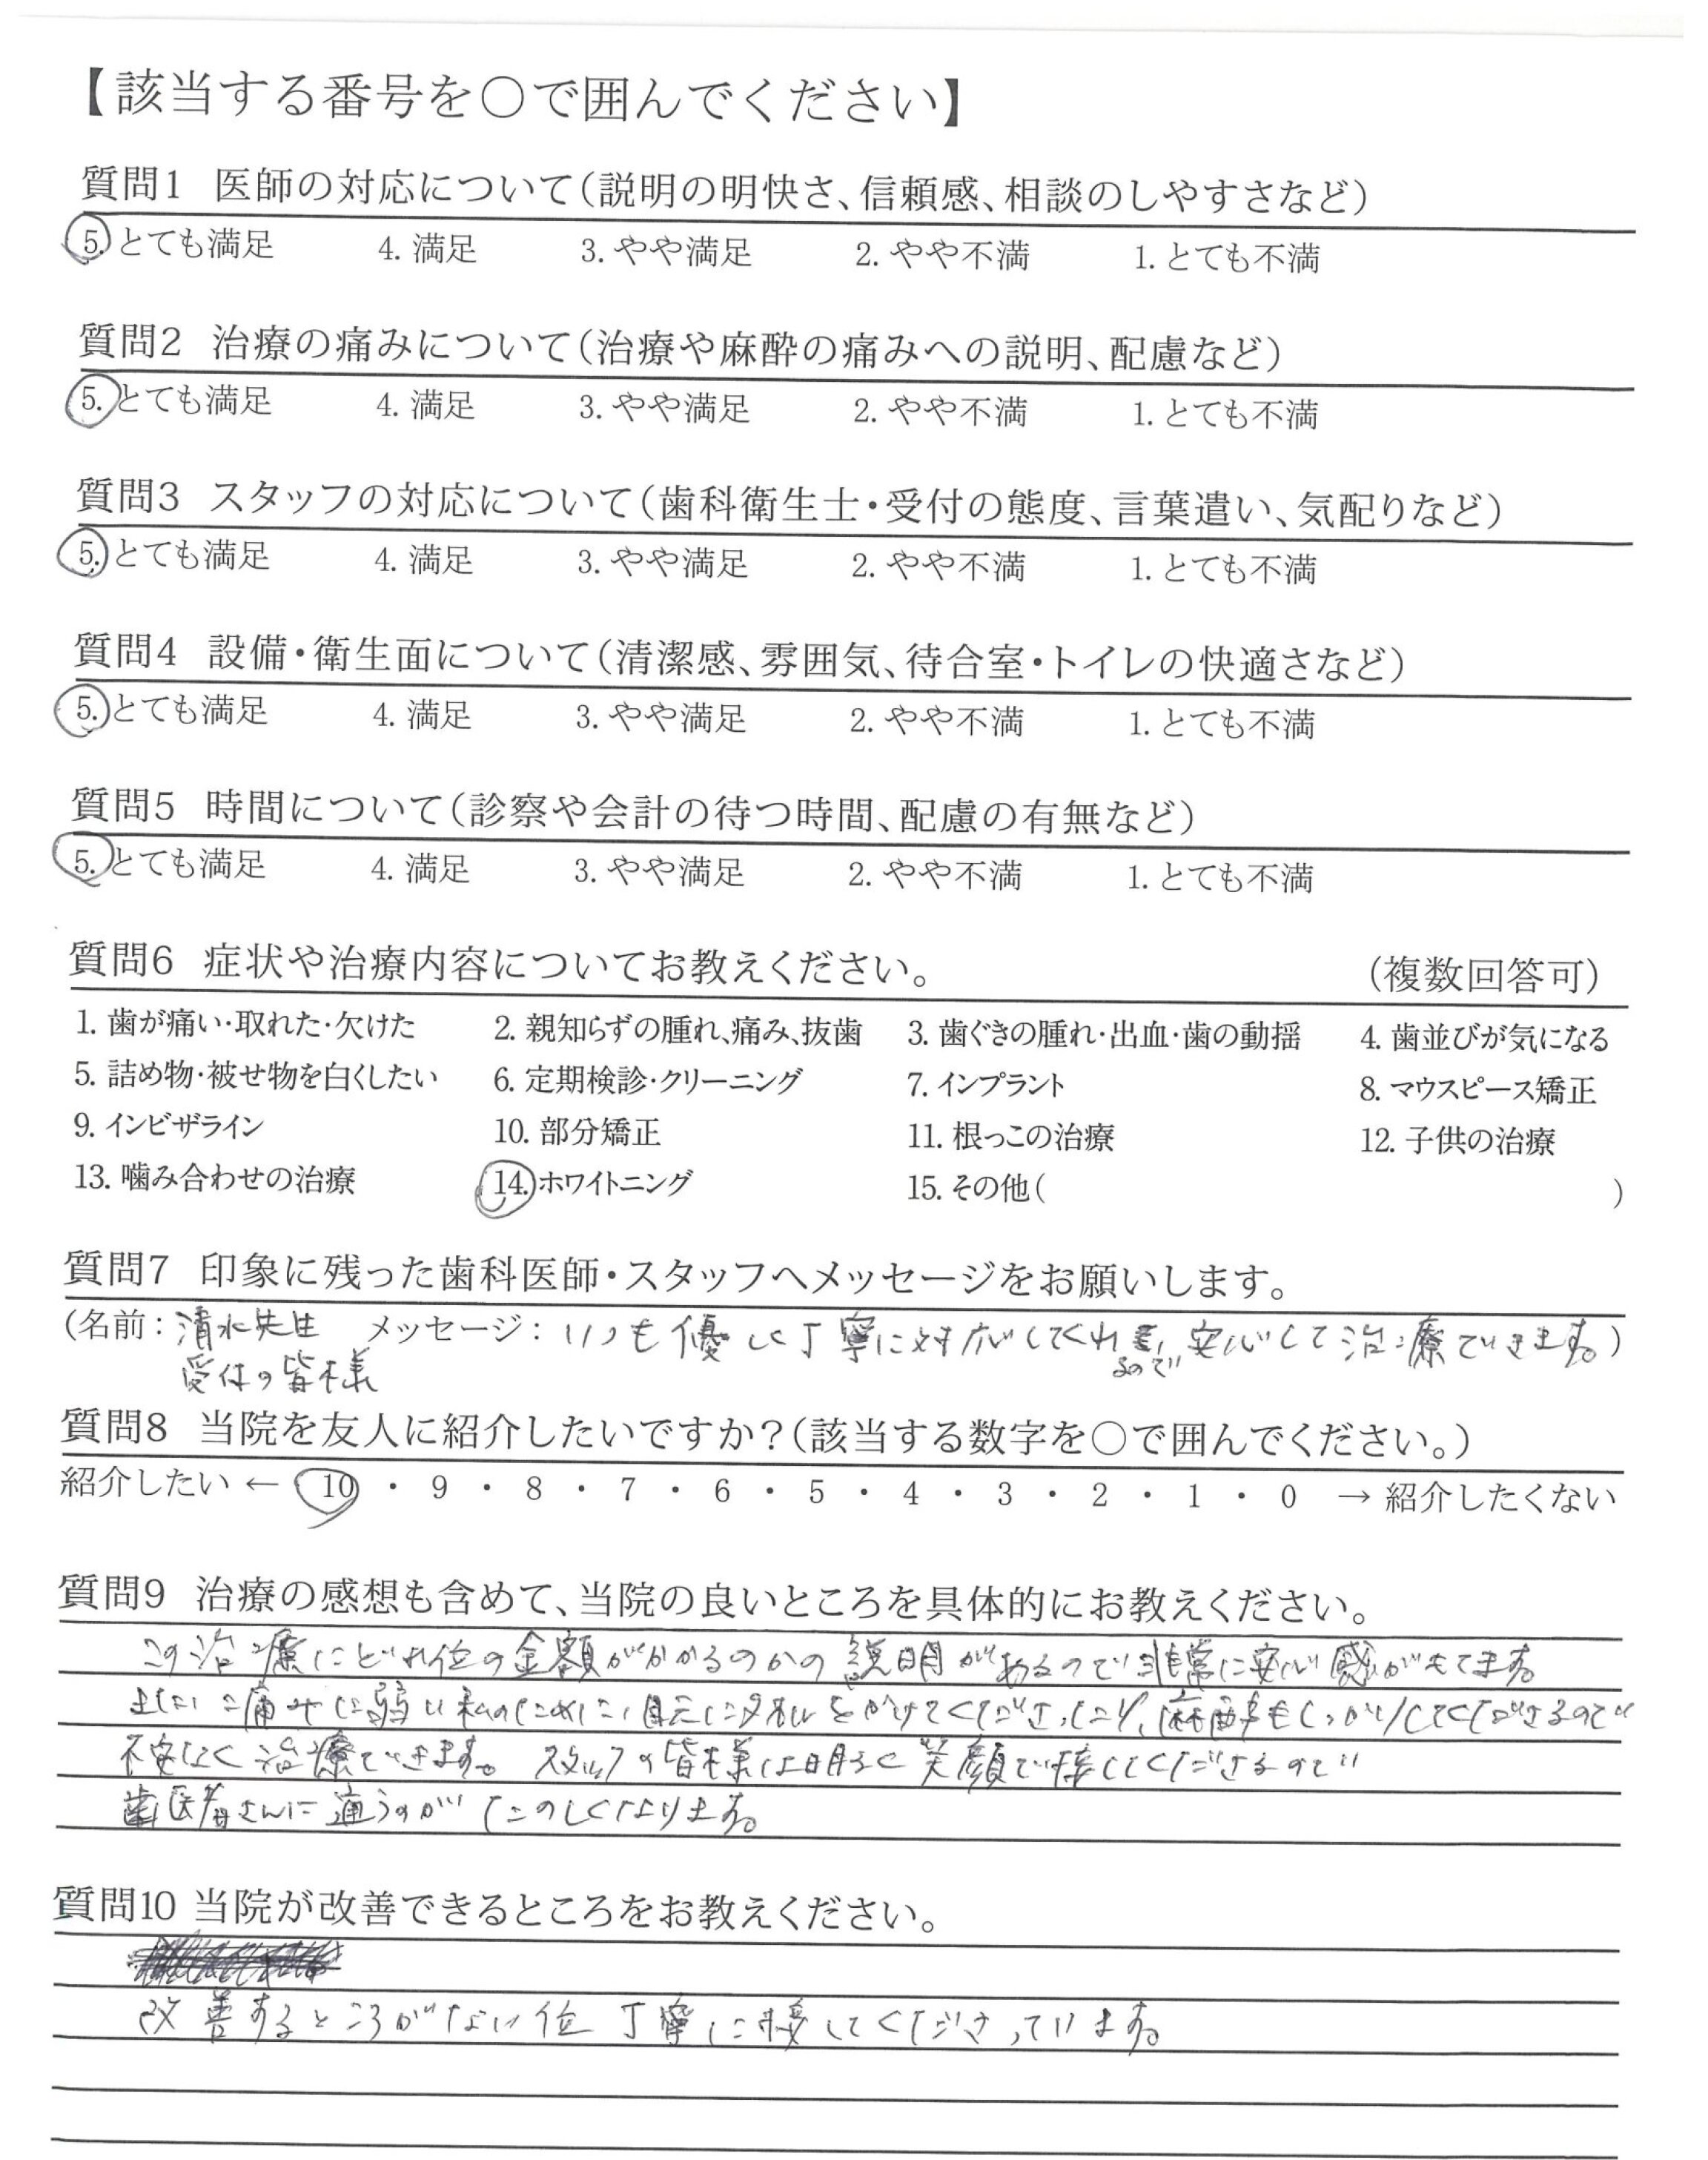 【該当する番号を○で囲んでください】
質問1 医師の対応について(説明の明快さ、信頼感、相談のしやすさなど)
5. とても満足 4. 満足 3. やや満足 2. やや不満 1. とても不満
質問2 治療の痛みについて(治療や麻酔の痛みへの説明、配慮など)
5. とても満足 4. 満足 3. やや満足 2. やや不満 1. とても不満
質問3 スタッフの対応について(歯科衛生士・受付の態度、言葉遣い、気配りなど)
5. とても満足 4. 満足 3. やや満足 2. やや不満 1. とても不満
質問4 設備・衛生面について(清潔感、雰囲気、待合室・トイレの快適さなど)
5. とても満足 4. 満足 3. やや満足 2. やや不満 1. とても不満
質問5 時間について(診察や会計の待つ時間、配慮の有無など)
5. とても満足 4. 満足 3. やや満足 2. やや不満 1. とても不満
質問6 症状や治療内容についてお教えください。 (複数回答可)
1. 歯が痛い・取れた・欠けた 2. 親知らずの腫れ、痛み、抜歯 3. 歯ぐきの腫れ・出血・歯の動揺 4. 歯並びが気になる
5. 詰め物・被せ物を白くしたい 6. 定期検診・クリーニング 7. インプラント 8. マウスピース矯正
9. インビザライン 10. 部分矯正 11. 根っこの治療 12. 子供の治療
13. 噛み合わせの治療 14. ホワイトニング 15. その他( )
質問7 印象に残った歯科医師・スタッフへメッセージをお願いします。
(名前: 清水先生 メッセージ: いつも優しく丁寧に対応してくれ るので 安心して治療できます。)
受付の皆様
質問8 当院を友人に紹介したいですか?(該当する数字を○で囲んでください。)
紹介したい ← 10 ・ 9 ・ 8 ・ 7 ・ 6 ・ 5 ・ 4 ・ 3 ・ 2 ・ 1 ・ 0 → 紹介したくない
質問9 治療の感想も含めて、当院の良いところを具体的にお教えください。
この治療にどれ位の金額がかかるのかの説明があるので非常に安心感がもてます。
また痛みに弱い私のために、目元にタオルをかけてくださったり、麻酔もしっかりしてくださるので
不安なく治療できます。スタッフの皆様は明るく笑顔で接してくださるので
歯医者さんに通うのがたのしくなります。
質問10 当院が改善できるところをお教えください。
改善するところがない位丁寧に接してくださっています。